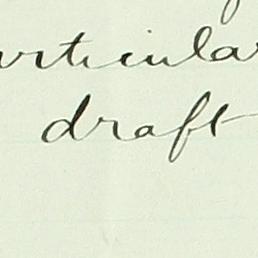 articular
draft